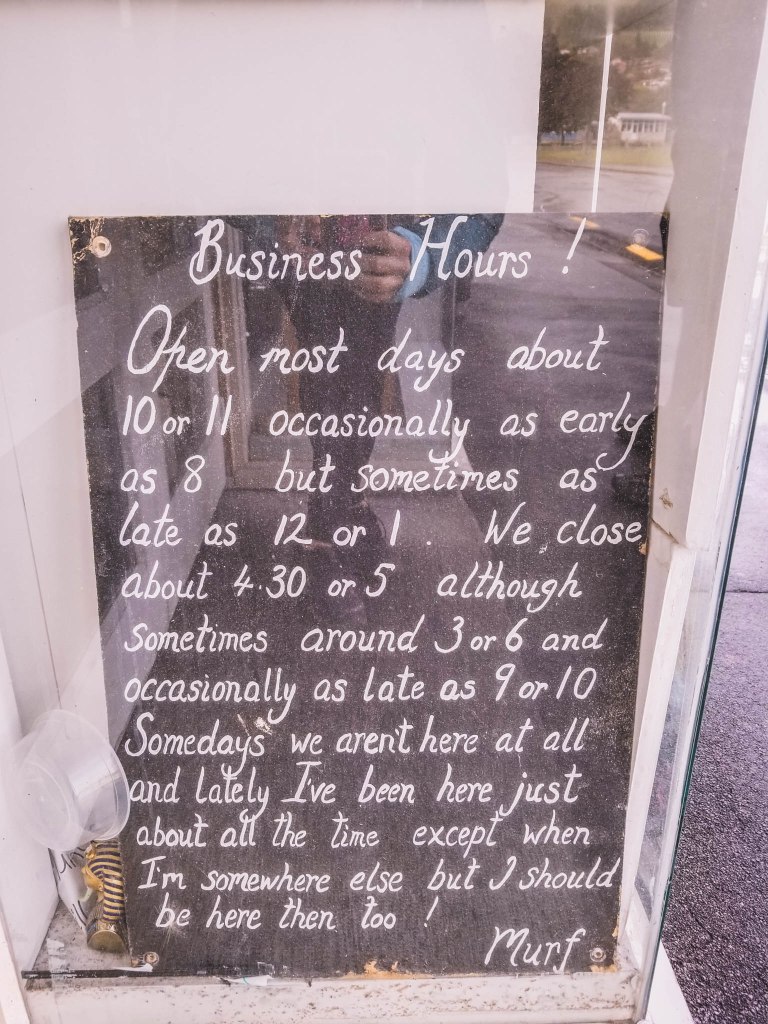 Business Hours !
Open most days about
10 or 11 occasionally as early
as 8 but sometimes as
late as 12 or 1 . We close
about 4.30 or 5 although
sometimes around 3 or 6 and
occasionally as late as 9 or 10
Somedays we aren't here at all
and lately I've been here just
about all the time except when
I'm somewhere else but I should
be here then too !
Murf